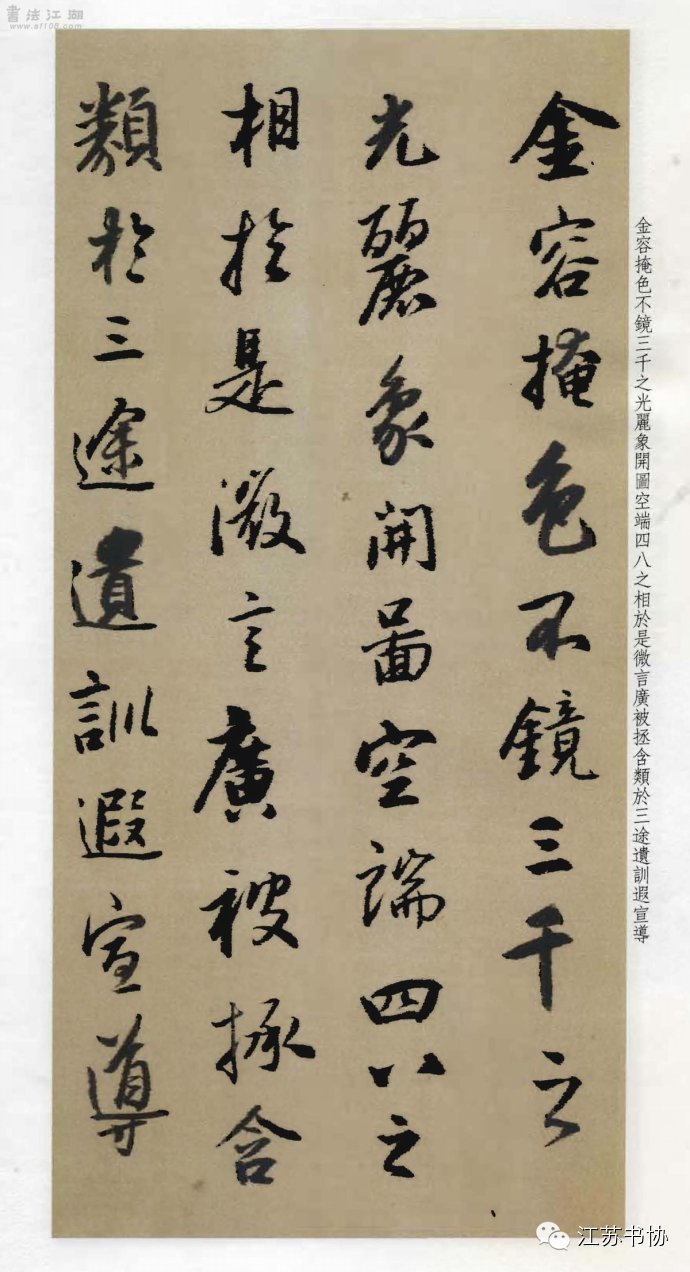 書法江湖
www.sf108.com
金容掩色不鏡三千之
光麗象開圖空端四八之
相於是微言廣被拯含
類於三途遺訓遐宣導
金容掩色不鏡三千之光麗象開圖空端四八之相於是微言廣被拯含類於三途遺訓遐宣導
江苏书协